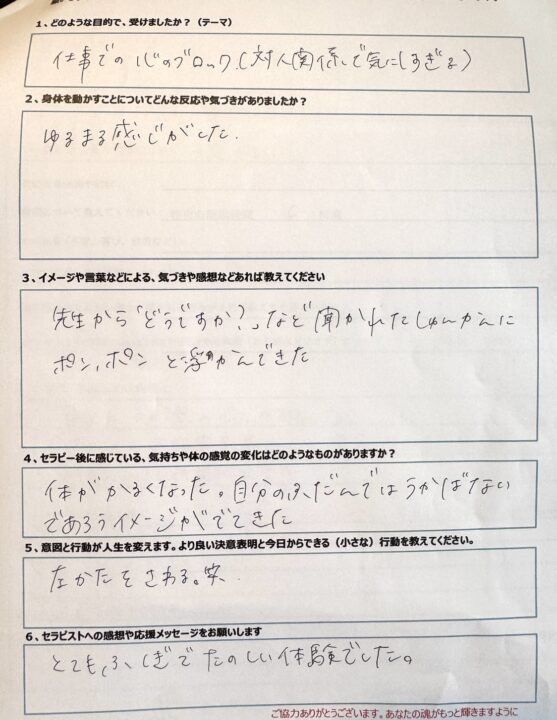 1、どのような目的で、受けましたか？（テーマ）
仕事での心のブロック。(対人関係で気にしすぎる)
2、身体を動かすことについてどんな反応や気づきがありましたか？
ゆるまる感じがした.
3、イメージや言葉などによる、気づきや感想などあれば教えてください
先生から「どうですか？」など聞かれたしゅんかんに
ポン、ポンと浮かんできた
4、セラピー後に感じている、気持ちや体の感覚の変化はどのようなものがありますか？
体がかるくなった。自分のふだんではうかばない
であろうイメージがでてきた
5、意図と行動が人生を変えます。より良い決意表明と今日からできる（小さな）行動を教えてください。
左かたをさわる。笑.
6、セラピストへの感想や応援メッセージをお願いします
とてもふしぎでたのしい体験でした。
ご協力ありがとうございます。あなたの魂がもっと輝きますように